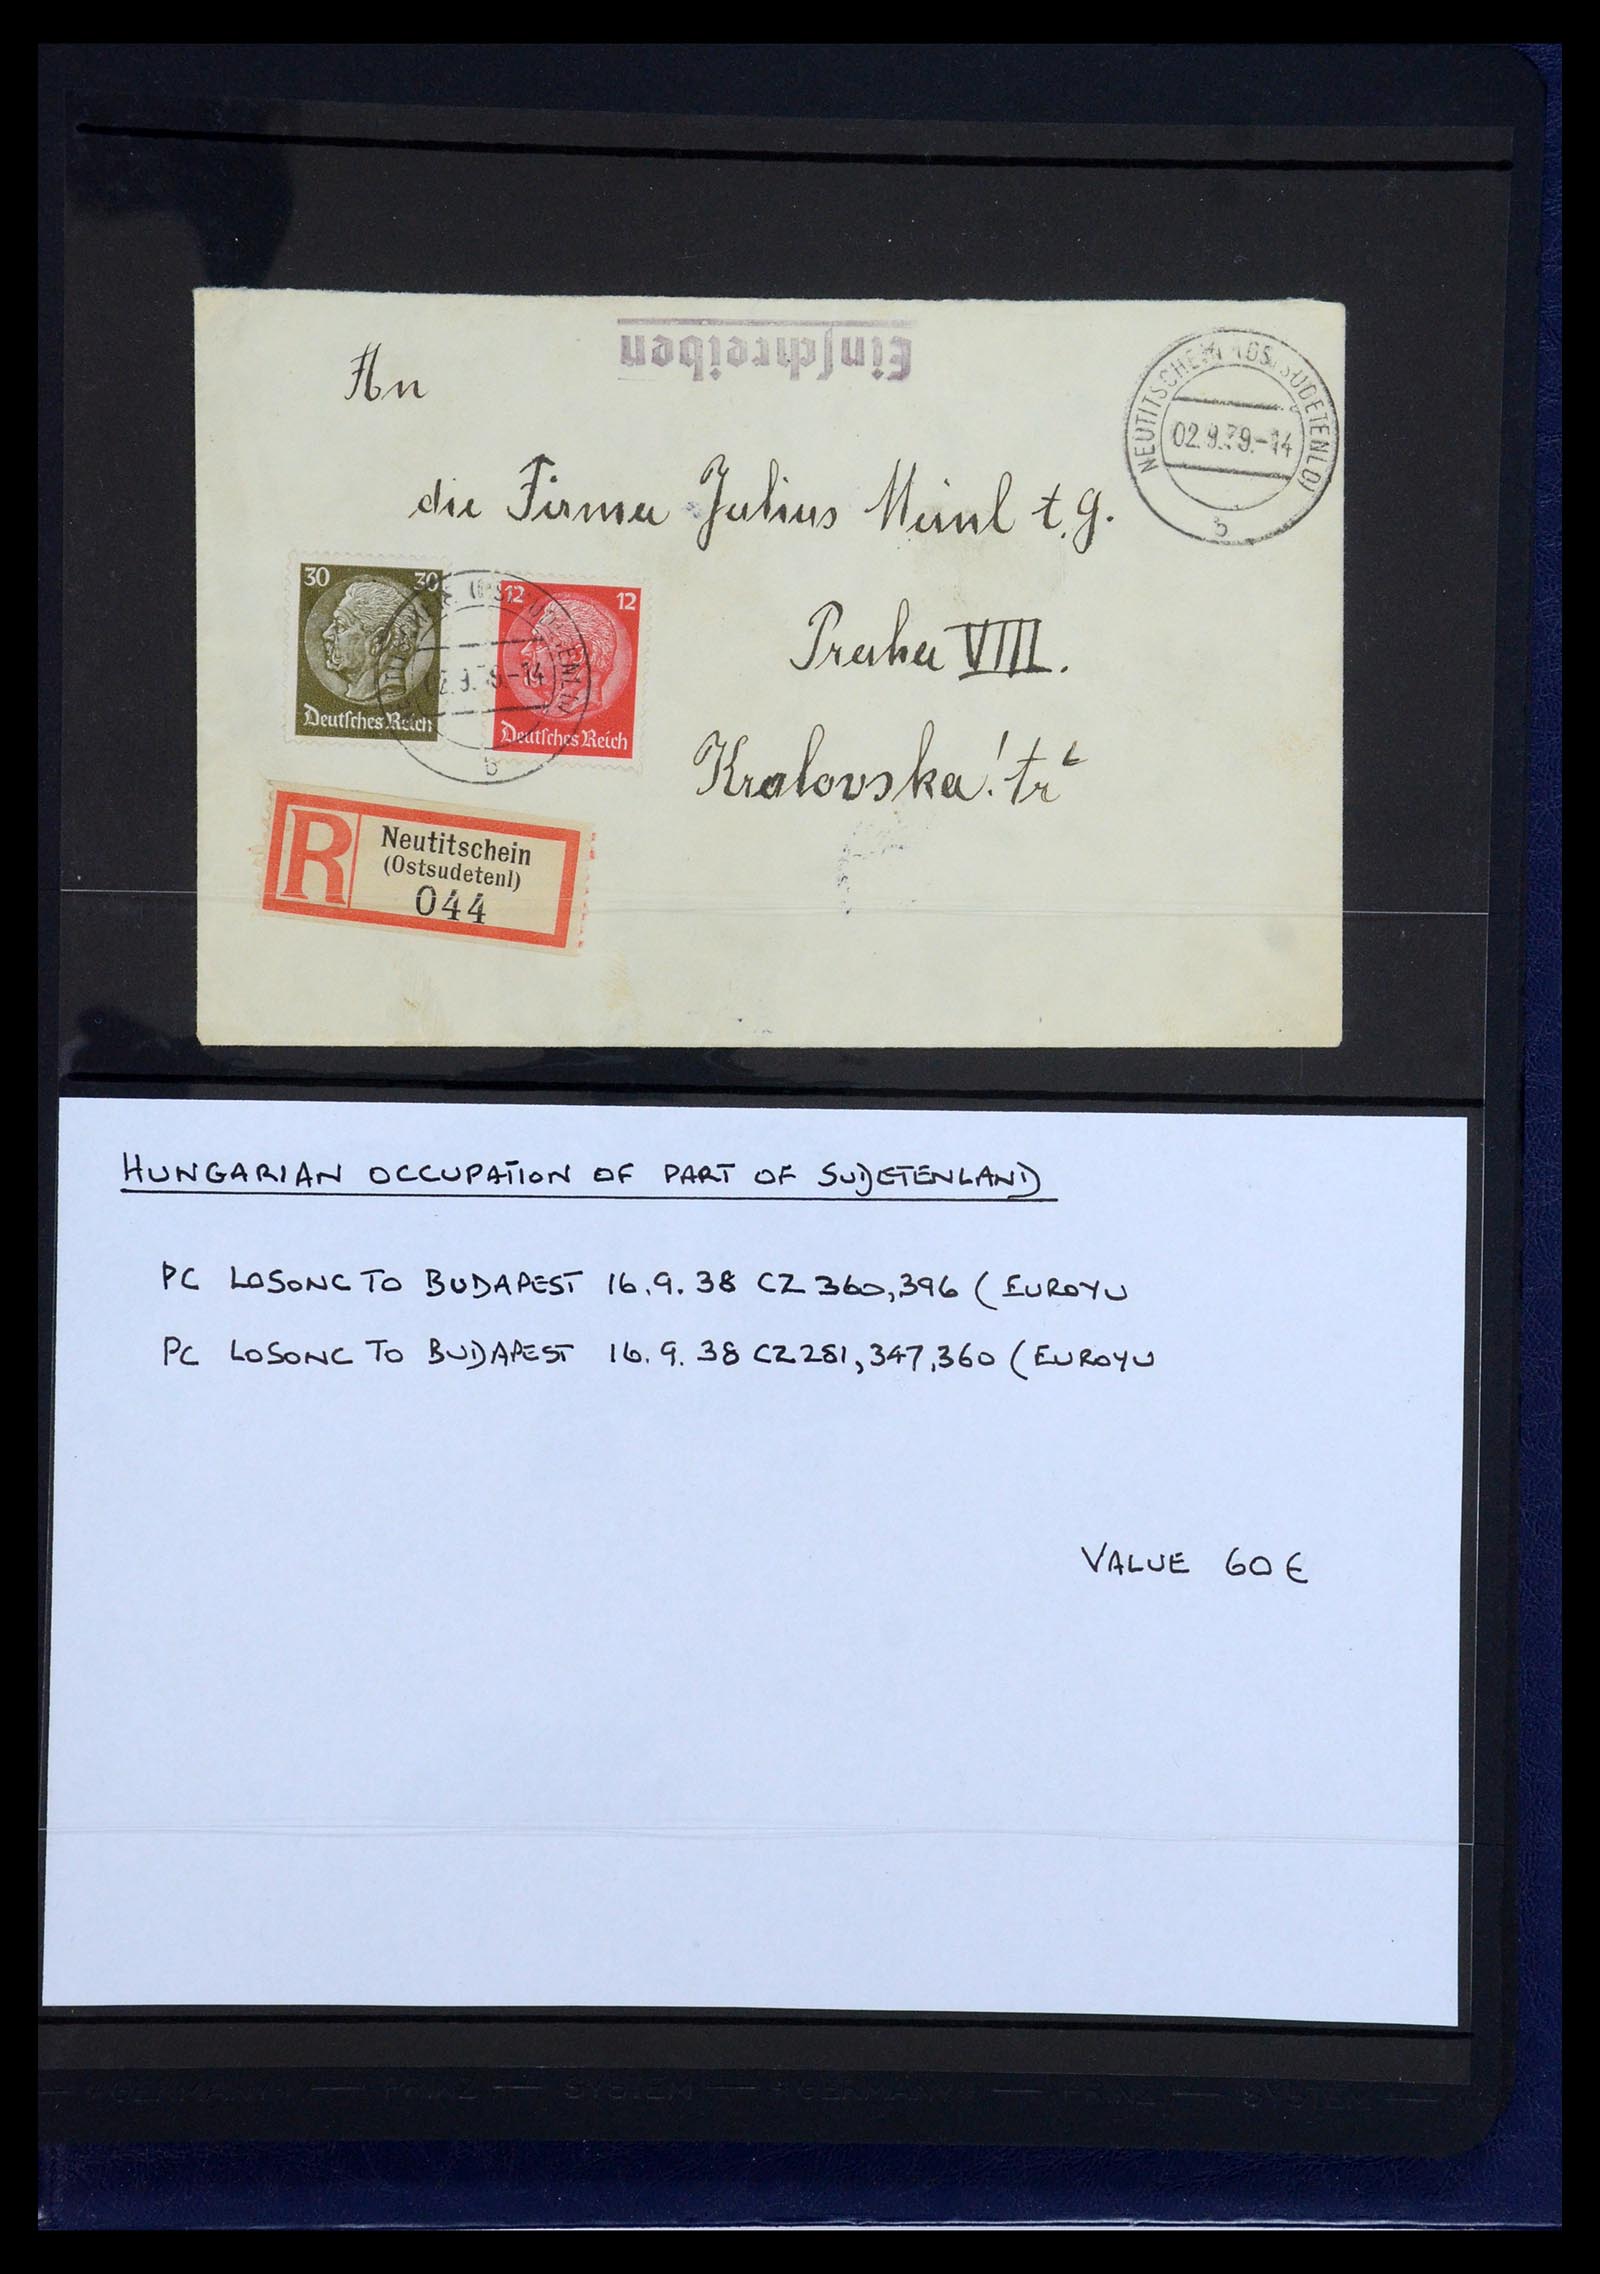 Einschreiben
An
NEUTITSCHEIN (OSTSUDETENLD)
02.9.39.-14
b
die Firma Julius Meinl t.g.
30 30
12 12
Praha VIII.
Deutsches Reich
Deutsches Reich
b
Kralovska! tř
R Neutitschein
(Ostsudetenl)
044
HUNGARIAN OCCUPATION OF PART OF SUDETENLAND
PC LOSONC TO BUDAPEST 16.9.38 CZ 360,396 (EUROYU
PC LOSONC TO BUDAPEST 16.9.38 CZ 281,347,360 (EUROYU
VALUE 60 €
GERMANY — PRINZ — SYSTEM — GERMANY — PRINZ — SYSTEM —